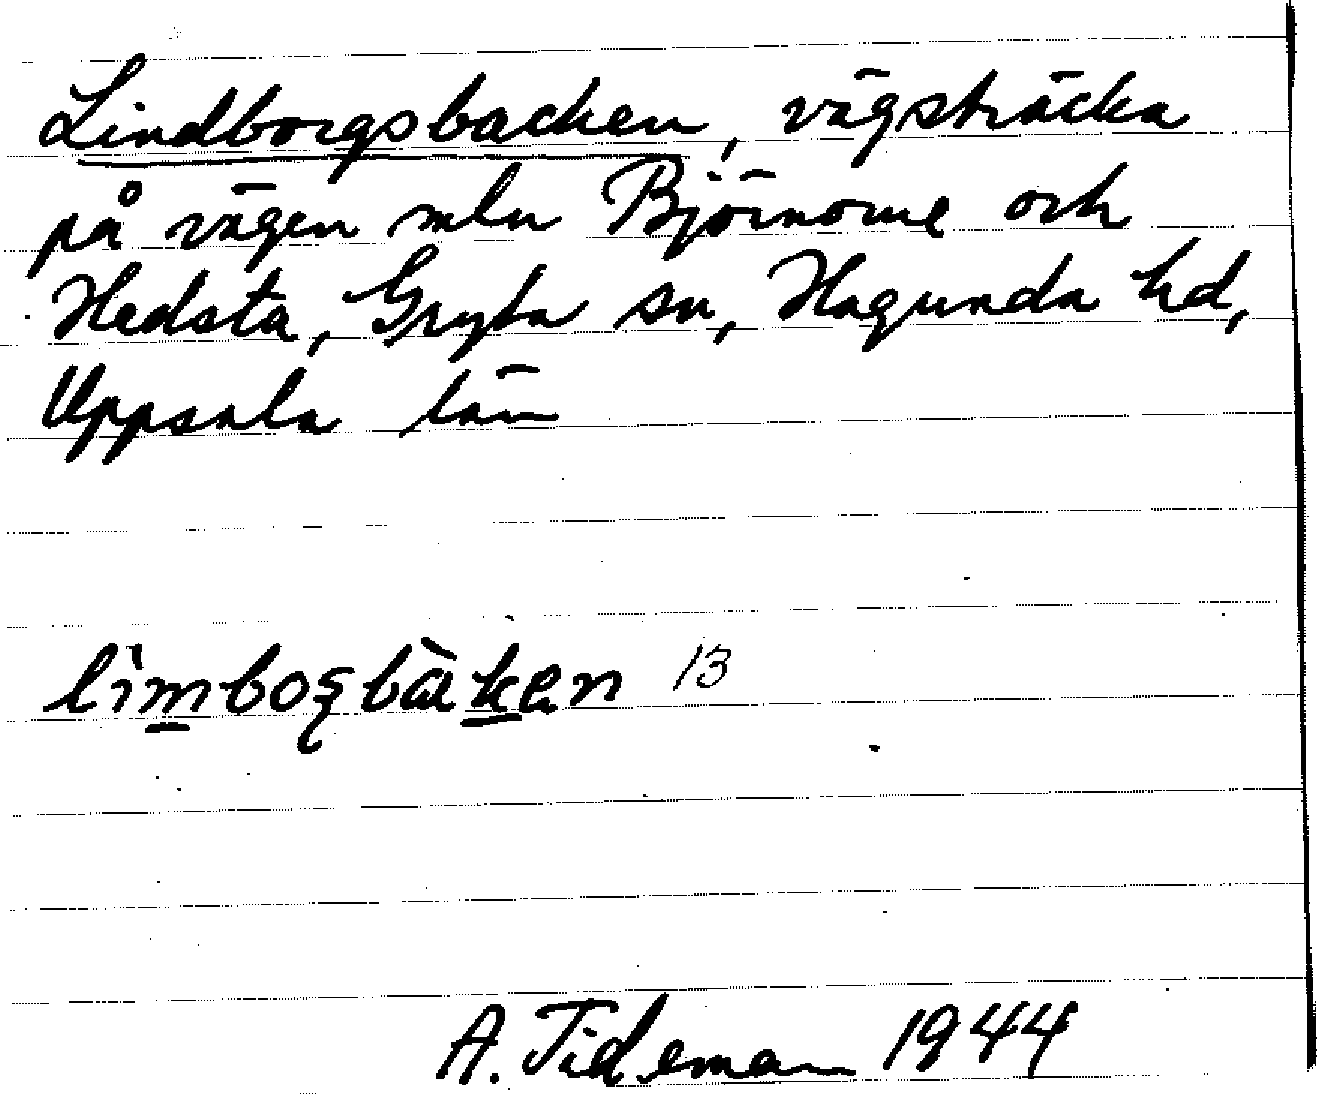 Lindborgsbacken, vägsträcka
på vägen mln Björnome och
Hedsta, Gryta sn, Hagunda hd,
Uppsala län
lìmboşbàken 13
A. Tideman 1944